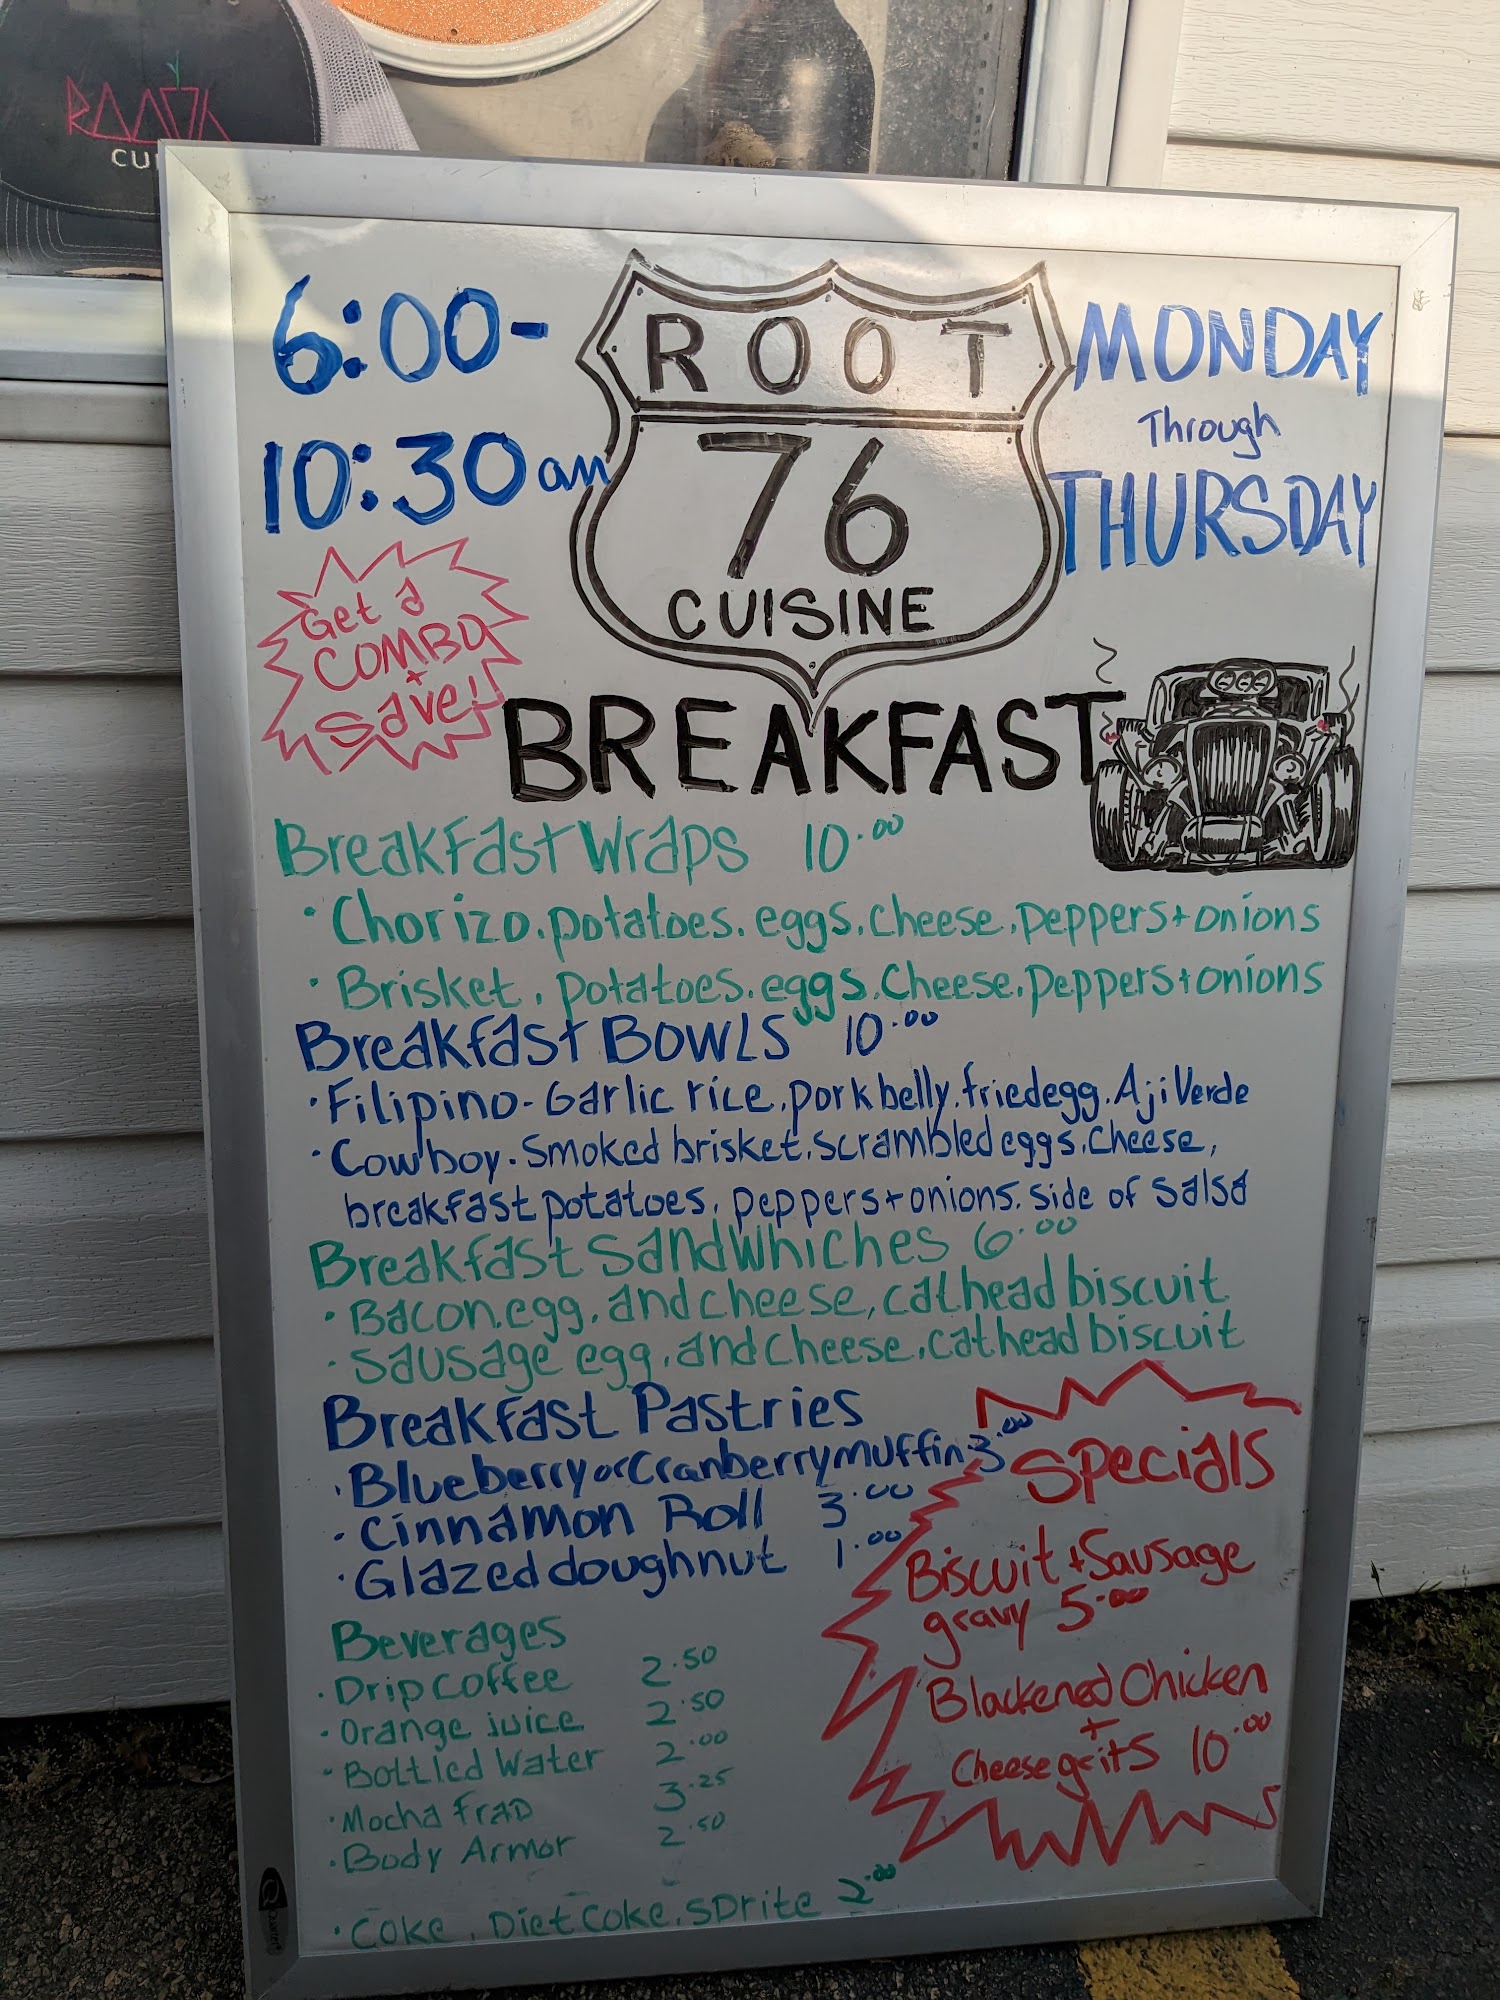 CUI
6:00-
10:30 am
ROOT
76
CUISINE
MONDAY
Through
THURSDAY
Get a
COMBO
+
Save!
BREAKFAST
Breakfast Wraps 10.00
· Chorizo. potatoes. eggs. cheese. peppers + onions
· Brisket. potatoes. eggs. Cheese. peppers + onions
Breakfast BOWLS 10.00
· Filipino - Garlic rice. pork belly. fried egg. Aji Verde
· Cowboy. Smoked brisket. scrambled eggs. cheese,
breakfast potatoes. peppers + onions. side of salsa
Breakfast Sandwhiches 6.00
· Bacon. egg. and cheese, cathead biscuit
· Sausage egg. and cheese. cathead biscuit
Breakfast Pastries
· Blueberry or Cranberry muffin 3.00
· Cinnamon Roll 3.00
· Glazed doughnut 1.00
Beverages
· Drip Coffee 2.50
· Orange juice 2.50
· Bottled Water 2.00
· Mocha Frap 3.25
· Body Armor 2.50
· Coke. Diet Coke. Sprite 2.00
Specials
Biscuit + Sausage
gravy 5.00
Blackened Chicken
+
Cheese grits 10.00